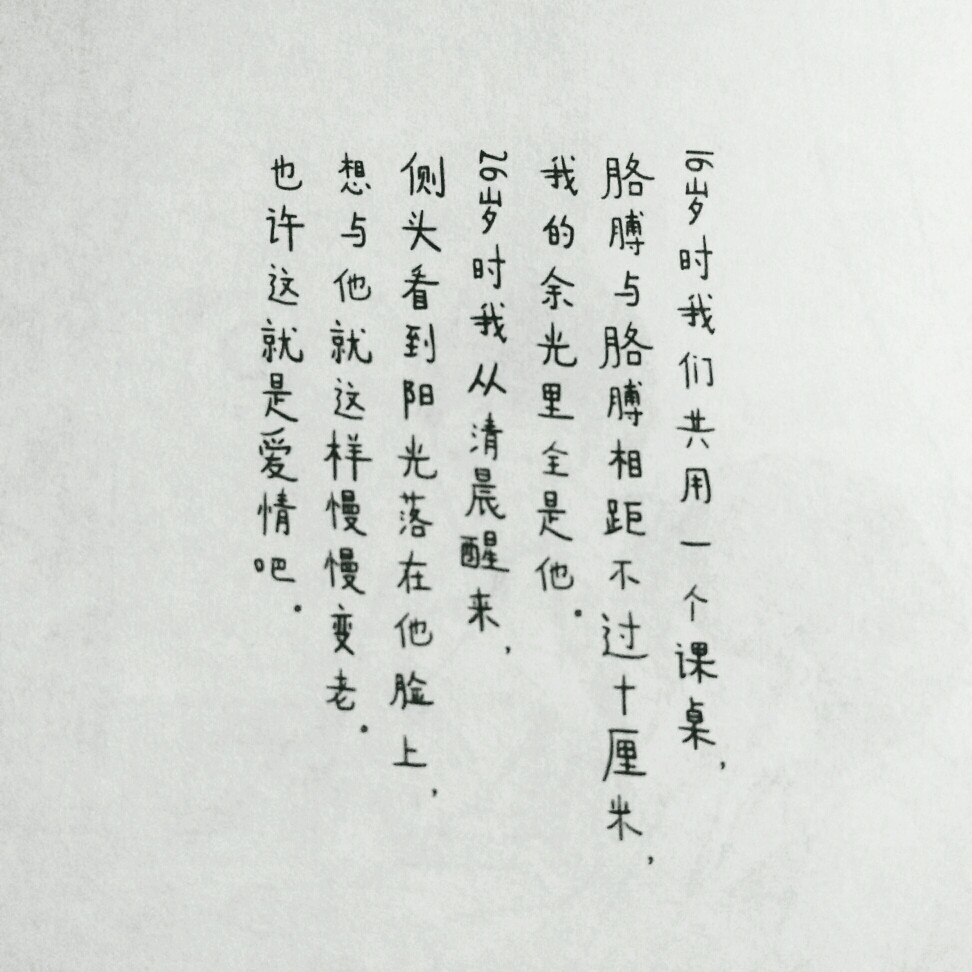 16岁时我们共用一个课桌，
胳膊与胳膊相距不过十厘米，
我的余光里全是他.
26岁时我从清晨醒来，
侧头看到阳光落在他脸上，
想与他就这样慢慢变老.
也许这就是爱情吧.